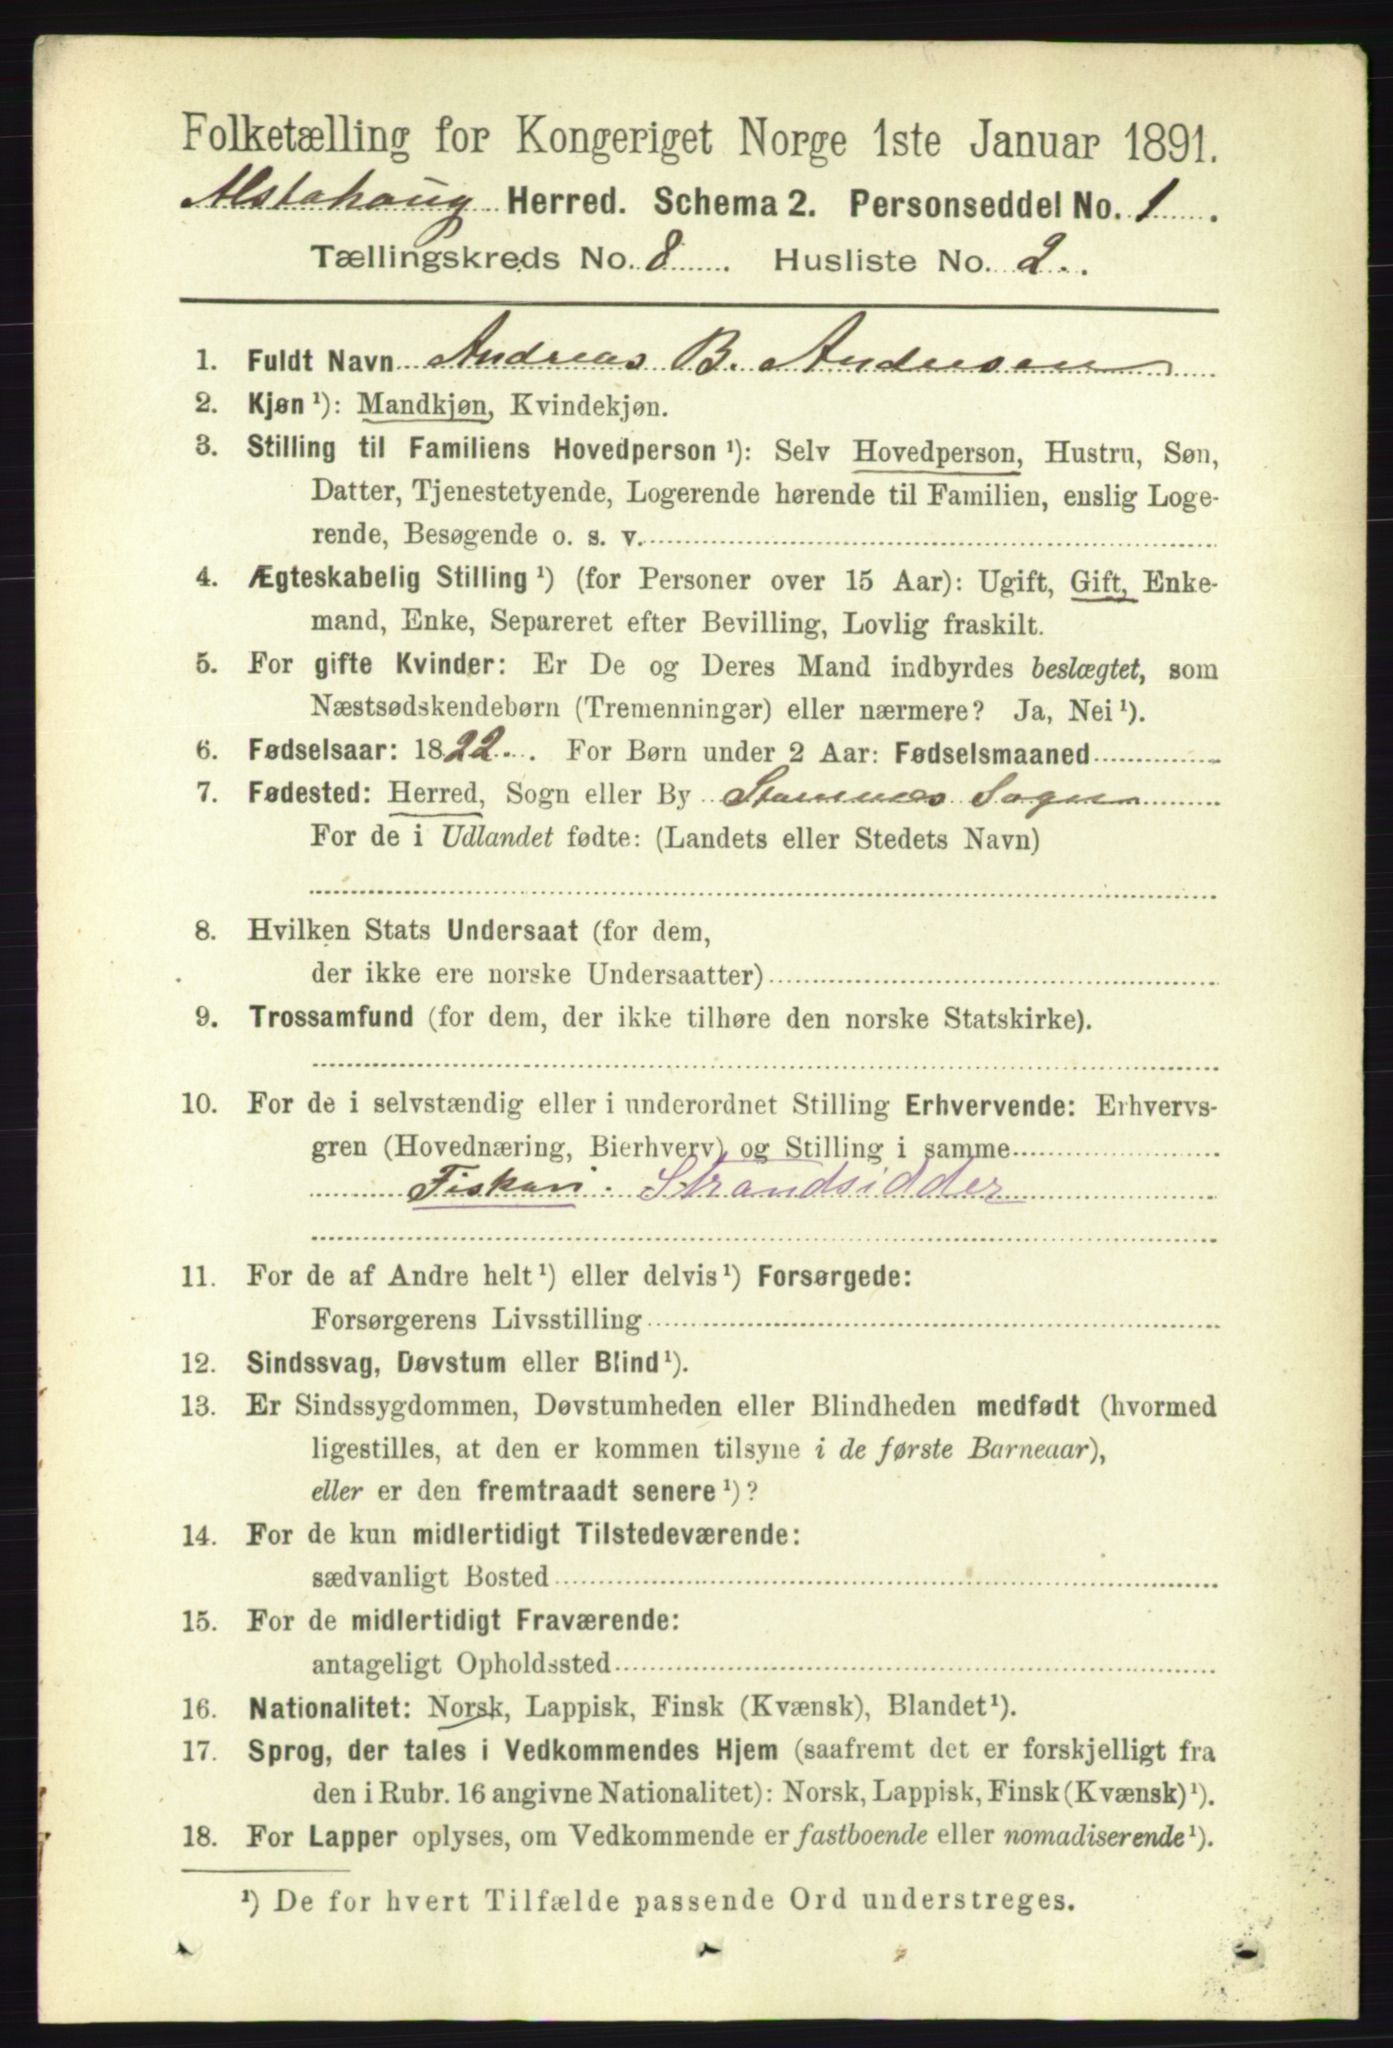 Folketælling for Kongeriget Norge 1ste Januar 1891.
Alstahoug Herred. Schema 2. Personseddel No. 1.
Tællingskreds No. 8. Husliste No. 2.
1. Fuldt Navn Andreas B. Andersen
2. Kjøn ¹): Mandkjøn, Kvindekjøn.
3. Stilling til Familiens Hovedperson ¹): Selv Hovedperson, Hustru, Søn,
Datter, Tjenestetyende, Logerende hørende til Familien, enslig Loge-
rende, Besøgende o. s. v.
4. Ægteskabelig Stilling ¹) (for Personer over 15 Aar): Ugift, Gift, Enke-
mand, Enke, Separeret efter Bevilling, Lovlig fraskilt.
5. For gifte Kvinder: Er De og Deres Mand indbyrdes beslægtet, som
Næstsødskendebørn (Tremenninger) eller nærmere? Ja, Nei ¹).
6. Fødselsaar: 1822. For Børn under 2 Aar: Fødselsmaaned
7. Fødested: Herred, Sogn eller By Stamnes Sogn
For de i Udlandet fødte: (Landets eller Stedets Navn)
8. Hvilken Stats Undersaat (for dem,
der ikke ere norske Undersaatter)
9. Trossamfund (for dem, der ikke tilhøre den norske Statskirke).
10. For de i selvstændig eller i underordnet Stilling Erhvervende: Erhvervs-
gren (Hovednæring, Bierhverv) og Stilling i samme
Fiskeri. Strandsidder
11. For de af Andre helt ¹) eller delvis ¹) Forsørgede:
Forsørgerens Livsstilling
12. Sindssvag, Døvstum eller Blind ¹).
13. Er Sindssygdommen, Døvstumheden eller Blindheden medfødt (hvormed
ligestilles, at den er kommen tilsyne i de første Barneaar),
eller er den fremtraadt senere ¹)?
14. For de kun midlertidigt Tilstedeværende:
sædvanligt Bosted
15. For de midlertidigt Fraværende:
antageligt Opholdssted
16. Nationalitet: Norsk, Lappisk, Finsk (Kvænsk), Blandet ¹).
17. Sprog, der tales i Vedkommendes Hjem (saafremt det er forskjelligt fra
den i Rubr. 16 angivne Nationalitet): Norsk, Lappisk, Finsk (Kvænsk) ¹).
18. For Lapper oplyses, om Vedkommende er fastboende eller nomadiserende ¹).
¹) De for hvert Tilfælde passende Ord understreges.